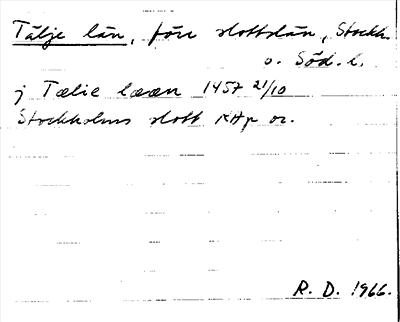 Tälje län, förr slottslän, Stockh.
o. Söd. l.
j Tælie lææn 1457 21/10
Stockholms slott KHp or.
R. D. 1966.